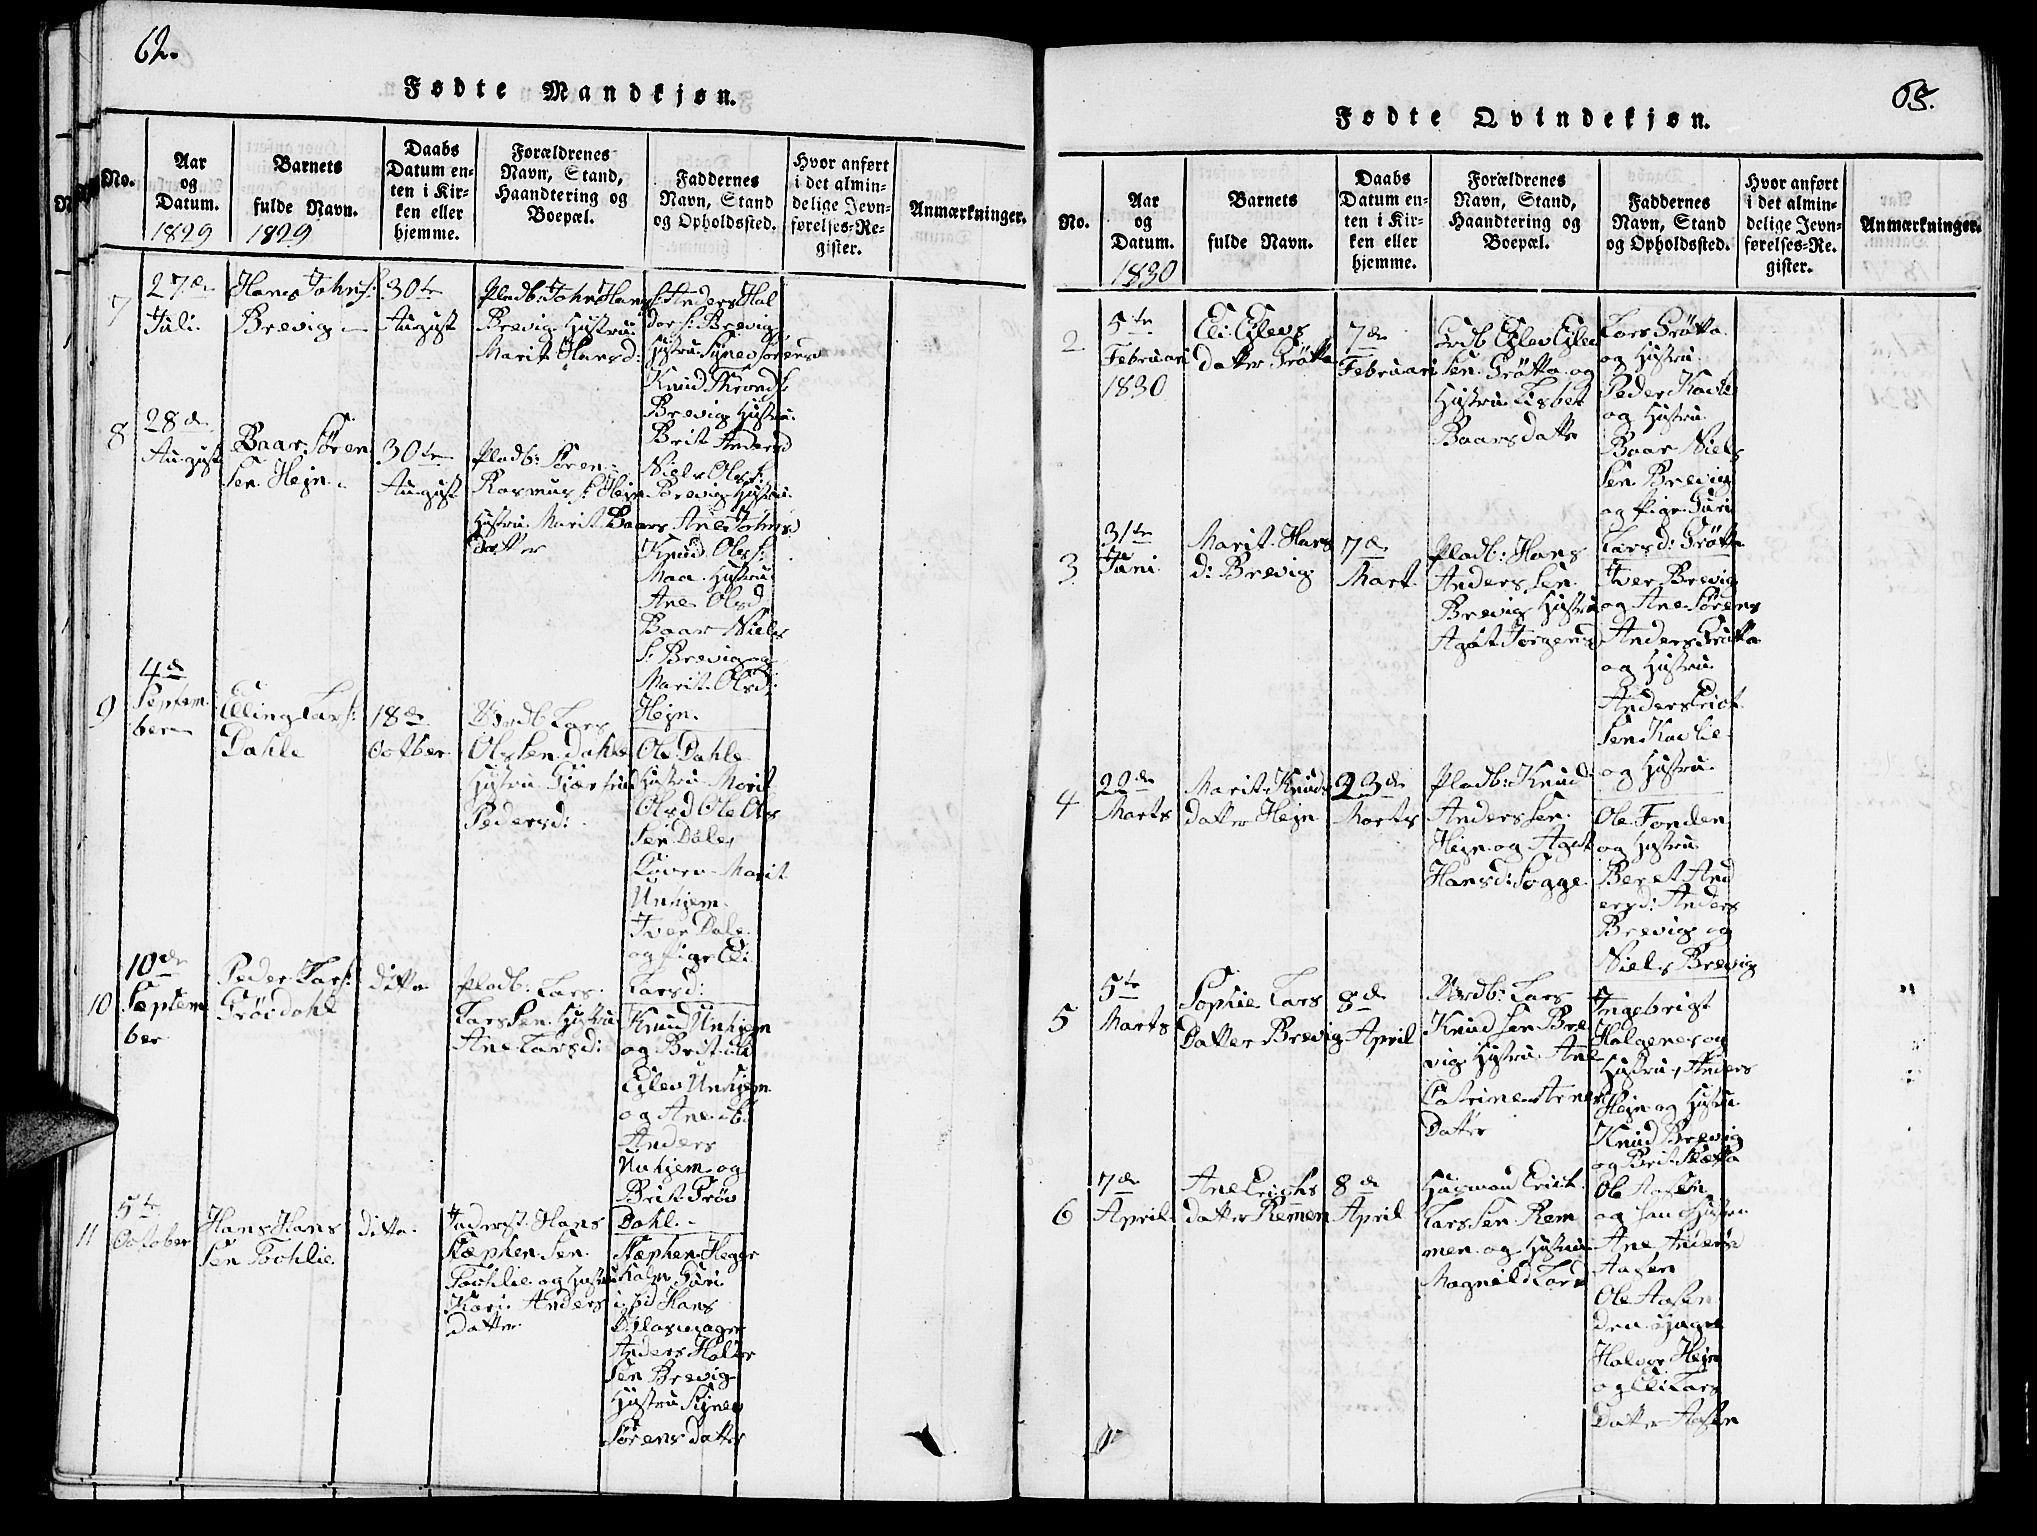 62.
Fødte Mandkjøn.
No.
Aar
og
Datum.
1829
Barnets
fulde Navn.
1829
Daabs
Datum en-
ten i Kir-
ken eller
hjemme.
Forældrenes
Navn, Stand,
Haandtering og
Boepæl.
Faddernes
Navn, Stand
og Opholdssted.
Hvor anført
i det almin-
delige Jevn-
førelses-Re-
gister.
Anmærkninger.
7
27de
Juli
Hans Johns:
Brevig
30te
August
Pladb: John Hans:
Brevig Hustru
Marit Hansd:
Anders Hal
dors: Brevig
Hustru Signe Sørensd
Knud Tronds:
Brevig Hustru
Brit Andersd
Niels Ols:
Brevig Hustru
Ane Johnsd
Knud Ols:
Maa Hustru
Ane Olsd
Baar Niels
S: Brevig og
Marit Olsd:
Hejn.
8
28de
August
Baar Søren
Sen Hejn
30te
August
Pladb: Søren
Rasmus S: Hejn
Hustru Marit Baars
Datter
9
4de
Septem
ber
Elling Lars:
Dahle
18de
Octber
Lars
Ols Sen Dahle
Hustru Gjærtrud
Pedersd:
Ole Dahle
Hustru Marit
Olsd Ole Ols
Sen Dale
Marit
Unhjem
Iver Dale
og Pige Eli
Larsd:
10
10de
Septem
ber
Peder Lars:
Frøidahl
ditto
Pladb: Lars
Lars Sen Hustru
Ane Larsd:
Knud Unhjem
og Brit ib:
Ejlev Unhjem
og Ane ib:
Anders
Unhjem og
Brit Frøi
Dahl.
11
5te
October
Hans Hans
Sen
ditto
Hans
Stæphen Sen
og Hustru
Kari Anders
datter
Stæphen Heger
holm Guri
ibid Hans
Anders Haldor
Sen Brevig
Hustru Signe
Sørens datter
65.
Fødte Qvindekjøn.
No.
Aar
og
Datum.
1830
Barnets
fulde Navn.
Daabs
Datum en-
ten i Kir-
ken eller
hjemme.
Forældrenes
Navn, Stand,
Haandtering og
Boepæl.
Faddernes
Navn, Stand
og Opholdssted.
Hvor anført
i det almin-
delige Jevn-
førelses-Re-
gister.
Anmærkninger.
2
5te
Februari
1830
Eli Ejlevs
datter Grøtta
7de
Februari
Ejlev Ejlev
Sen Grøtta og
Hustru Lisbet
Baarsdatter
Lars Grøtta
og Hustru
Peder Kavlie
og Hustru
Baar Niels
Sen Brevig
og Pige Guri
Larsd: Grøtta
3
31te
Juni
Marit Hans
d: Brevig
7de
Mart
Pladb: Hans
Anders Sen
Brevig Hustru
Agat Jørgensd
Iver Brevig
og Ane Sørens
Anders Grøtta
og Hustru
Anders Erict
Sen Kavlie
og Hustru
4
22de
Marts
Marit Knuds
datter Hejn
23de
Marts
Pladb: Knud
Anders Sen
Hejn og Agat
Hansd: Sogge
Ole Fonden
og Hustru
Beret And
ersd: Anders
Brevig og
Niels Brevig
5
5te
Marts
Sophie Lars
Datter Brevig
8de
April
Lars
Knud Sen Bre
vig Hustru Ane
Catrine Arnes
Datter
Ingebrigt
Halgenes og
Hustru, Anders
Hejn og Hustru
Knud Brevig
og Brit Sletta
6
7de
April
Ane Erichs
datter Remen
8de
April
Husmand Erich
Lars Sen Rem
men og Hustru
Magnild Larsd
Ole Aasen
og han Hustru
Ane Andersd
Aasen
Ole Aasen
den yngre
Halvor Hejn
og Eli Lars
Datter Aasen